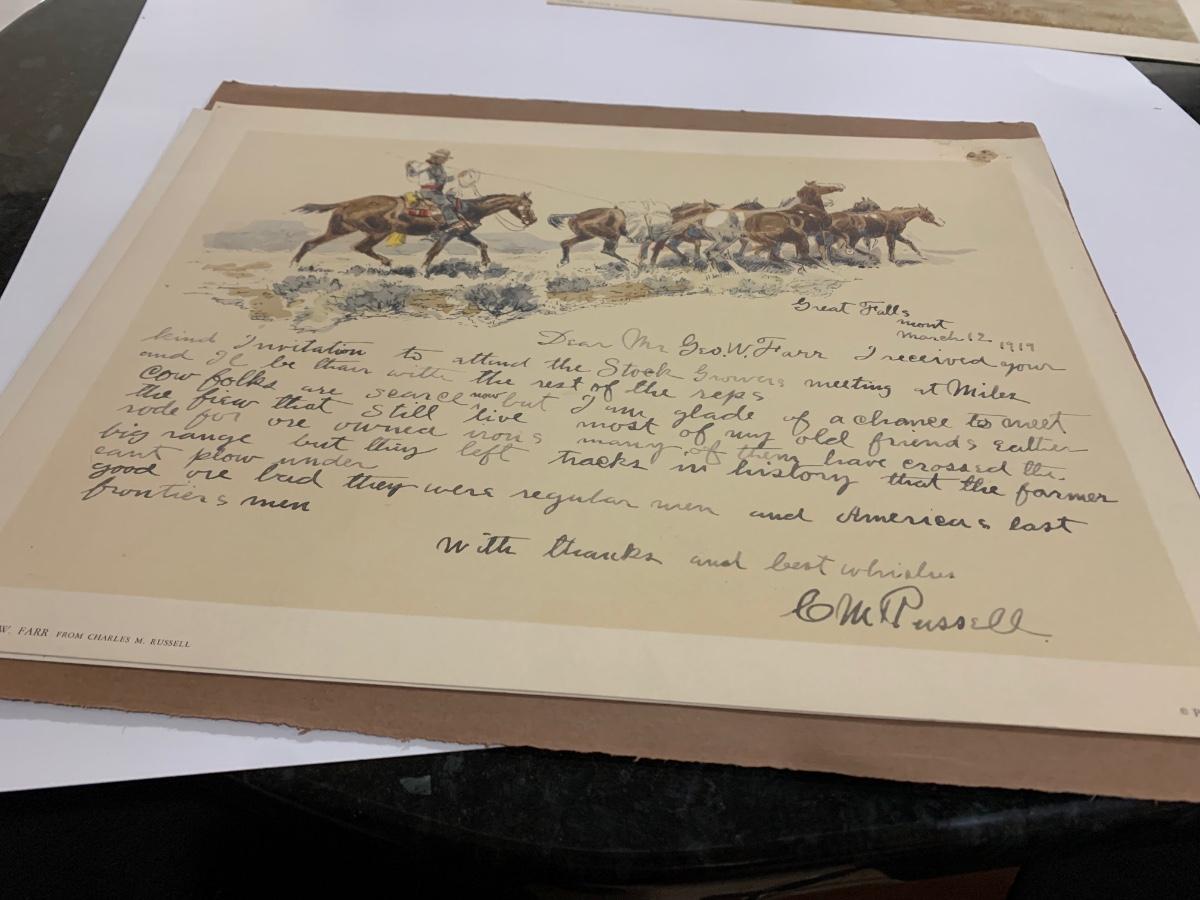 Great Falls
Mont
March 12 1919
Dear Mr Geo. W. Farr I received your
kind Invitation to attend the Stock Growers meeting at Miles
and Il be thair with the rest of the reps
Cow folks are scarce now but I am glade of a chance to meet
the fiew that still live most of my old friends eather
rode for ore owned irons many of them have crossed the
big range but they left tracks in history that the farmer
cant plow under
good ore bad they were regular men and Americas last
frontiers men
With thanks and best whishes
CM Russell
W. FARR FROM CHARLES M. RUSSELL
© P